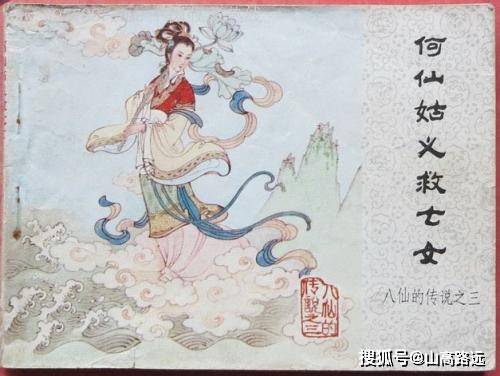 何仙姑义救七女
八仙的传说之三
八仙的
传说之三
搜狐号@山高路远